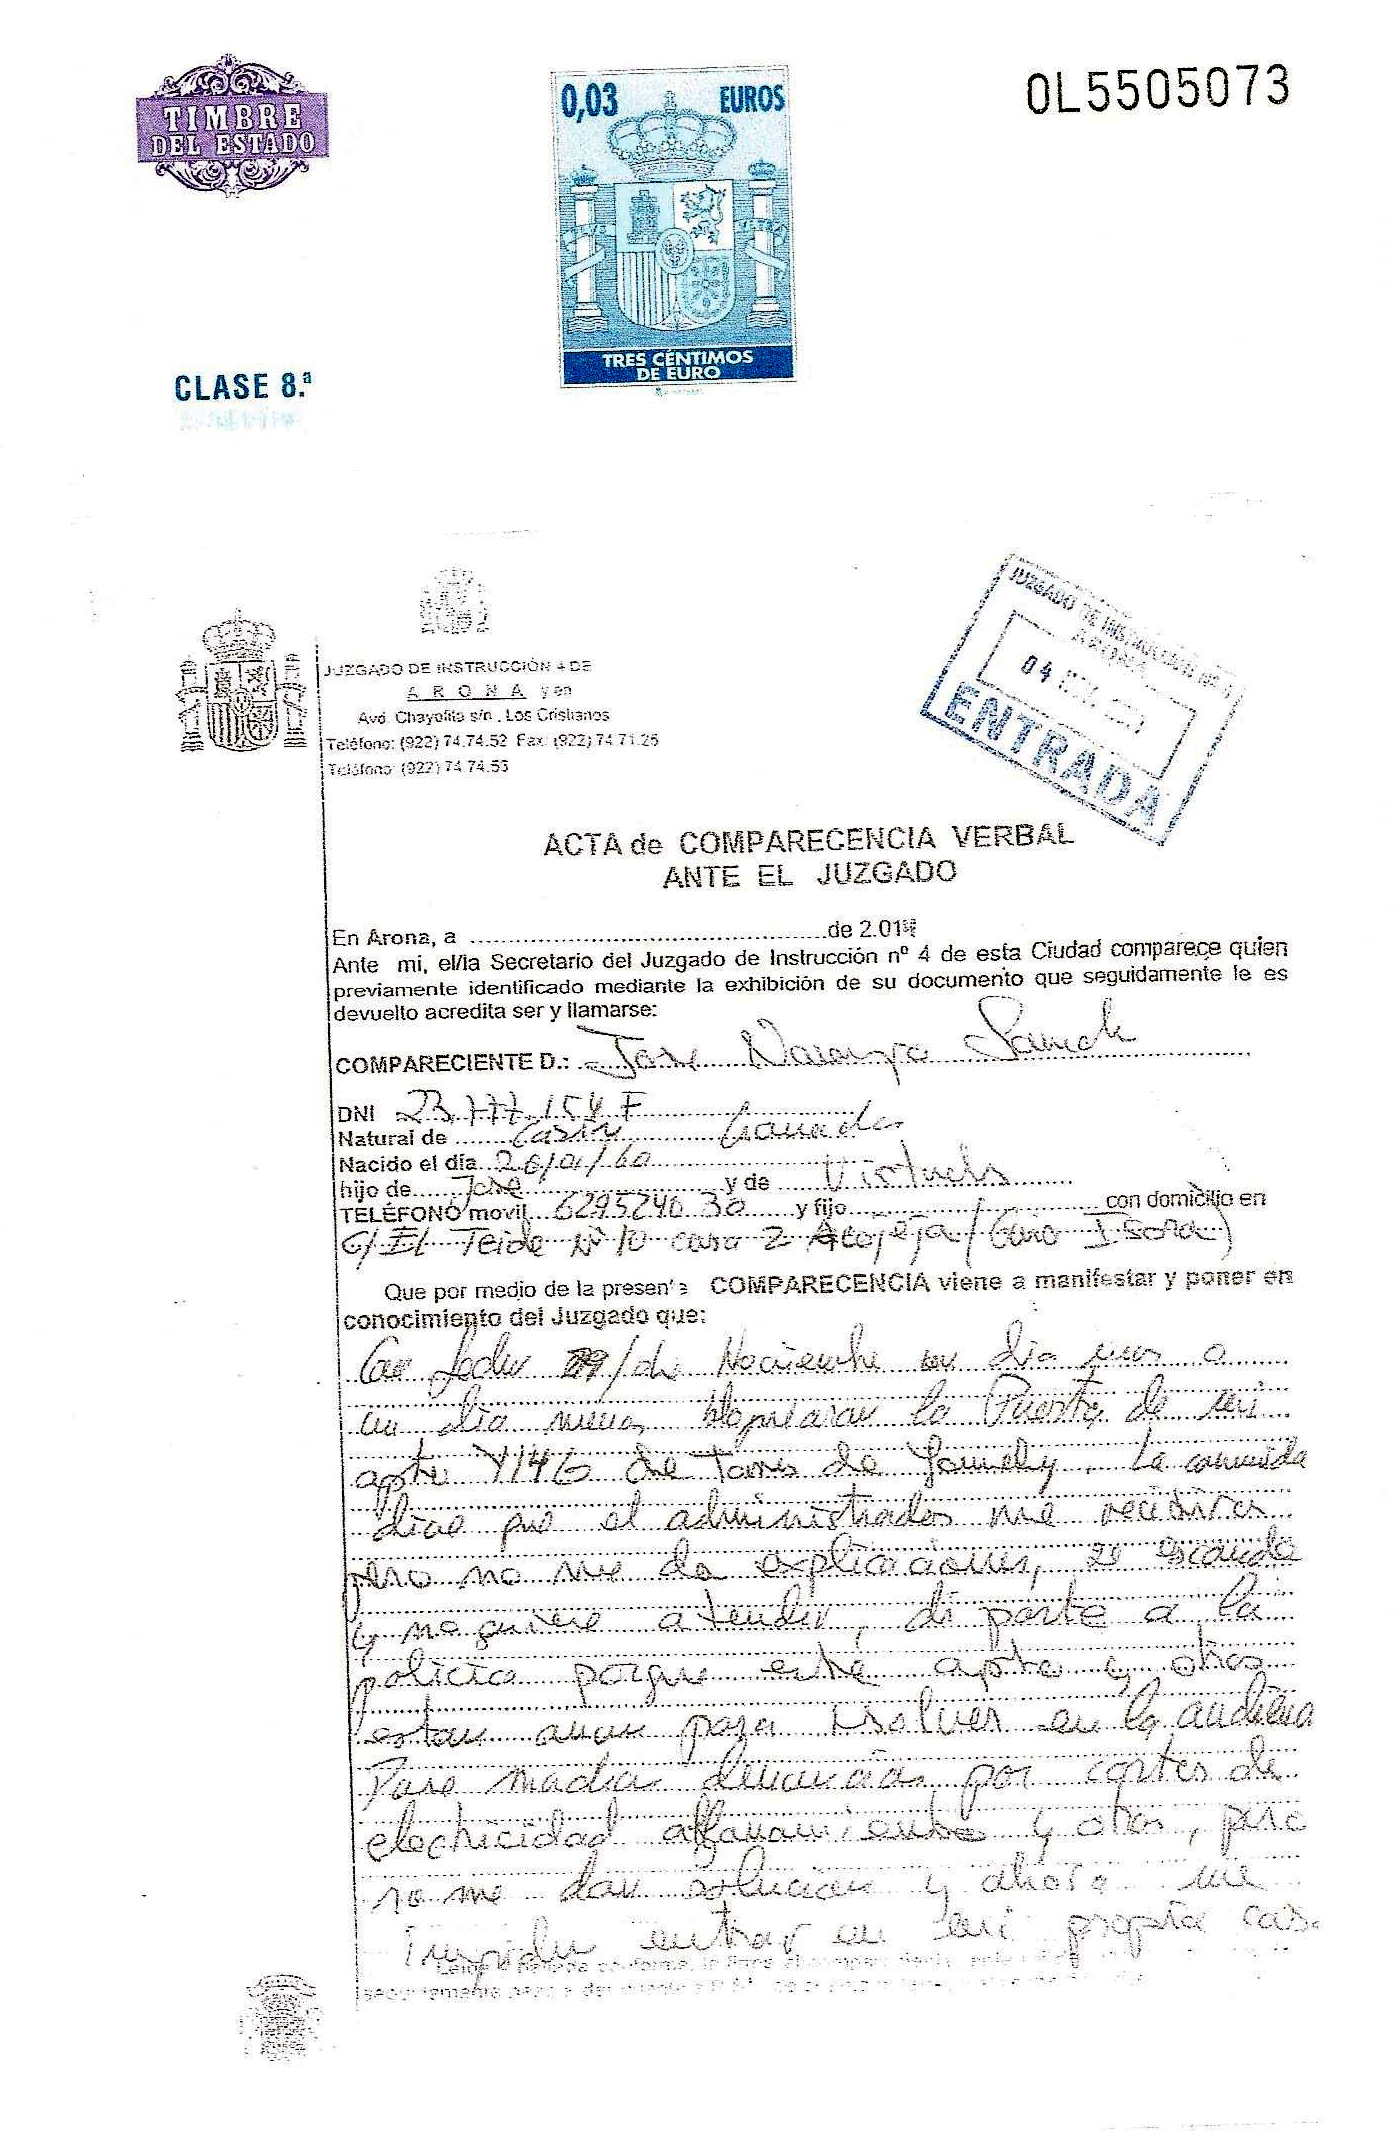 TIMBRE
DEL ESTADO
0,03 EUROS
TRES CÉNTIMOS
DE EURO
0L5505073
CLASE 8.ª
JUZGADO DE INSTRUCCIÓN 4 DE
A R O N A y en
Avd. Chayofita s/n , Los Cristianos
Teléfono: (922) 74.74.52 Fax: (922) 74 71 25
Teléfono: (922) 74 74.53
JUZGADO DE INSTRUCCIÓN
ARONA
04
ENTRADA
ACTA de COMPARECENCIA VERBAL
ANTE EL JUZGADO
En Arona, a ........ de 2.01
Ante mi, el/la Secretario del Juzgado de Instrucción nº 4 de esta Ciudad comparece quien
previamente identificado mediante la exhibición de su documento que seguidamente le es
devuelto acredita ser y llamarse:
COMPARECIENTE D.: Jose Naranjo Sanch
DNI 23.777.154 F
Natural de Granada
Nacido el día 26/01/60
hijo de Jose y de Virtudes
TELÉFONO movil 629524030 y fijo con domicilio en
C/ EL Teide Nº 10 casa 2 (Guia Isora)
Que por medio de la presente COMPARECENCIA viene a manifestar y poner en
conocimiento del Juzgado que:
Con fecha /de Noviembre un dia mas a
un dia menos bloquearon la Puerta de mi
apto de de Yomely. La comunida
dice que el administrador me recibira
pero no me da explicaciones, se esconde
y no quiere atender, di parte a la
policia porque este apto y otros
estan aun para resolver en la audiena
Puse muchas denuncias por cortes de
electricidad allanamiento y otros, pero
no me dan solucion y ahora me
Impiden entrar en mi propia cas.